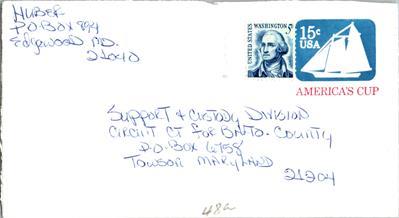 HUBER
P.O BOX 894
Edgewood MD.
21040
UNITED STATES
WASHINGTON 5c
15c
USA
AMERICA'S CUP
SUPPORT & CUSTODY DIVISION
CIRCUIT CT FOR BALTO. COUNTY
P.O. BOX 6758
TOWSON MARYLAND
21204